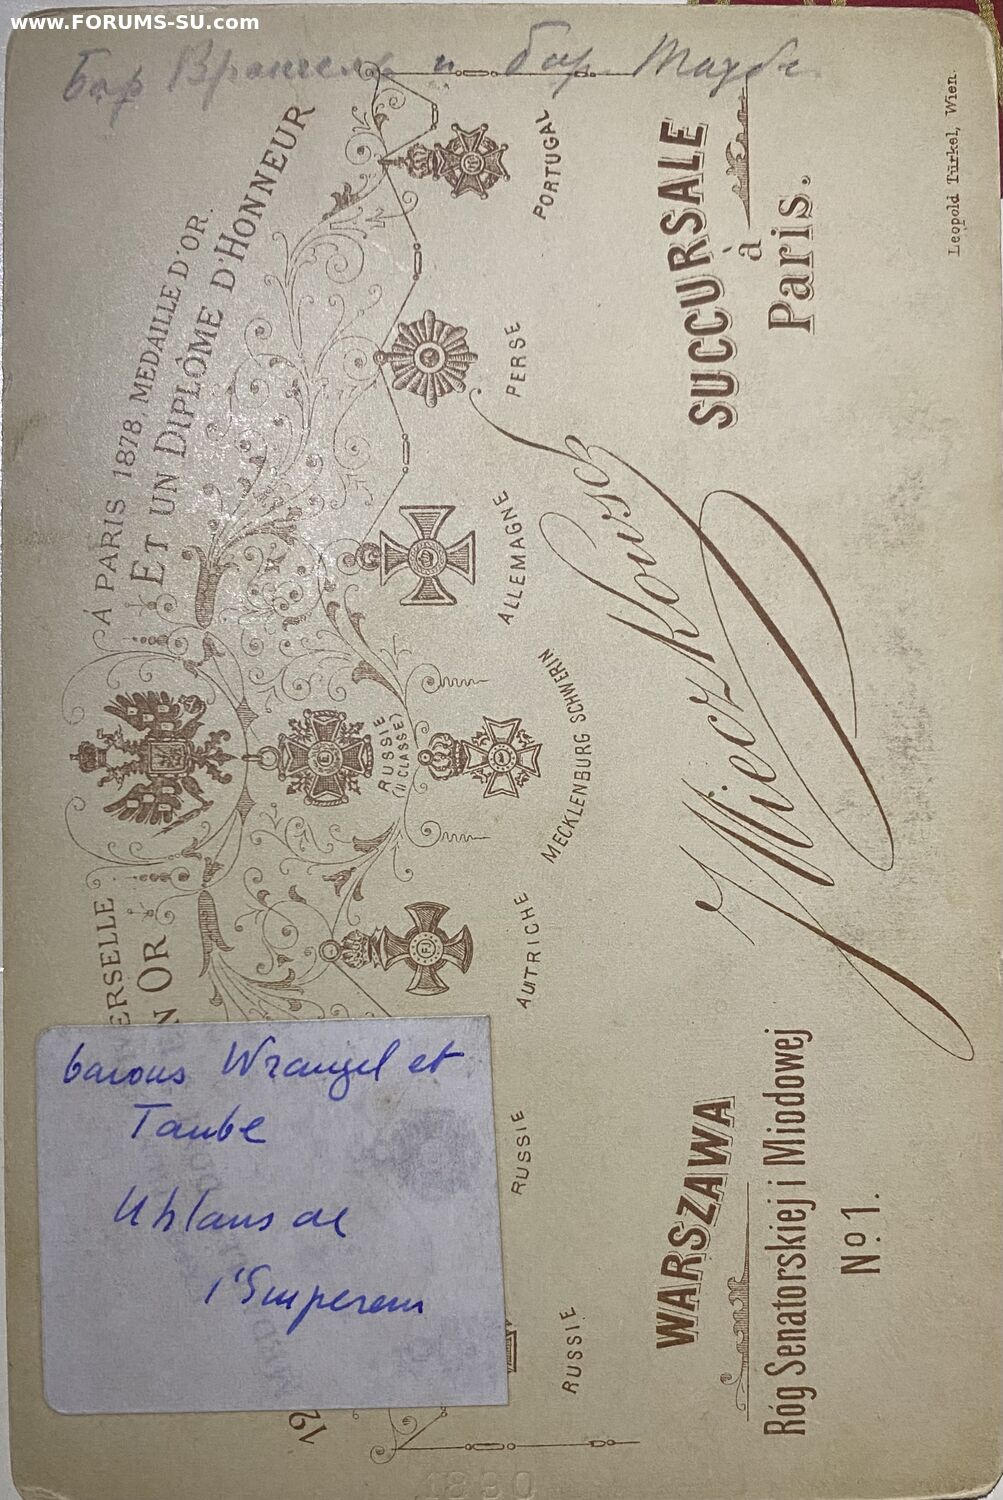 www.FORUMS-SU.com
Бар Врангель и бар Таубе
À PARIS 1878, MEDAILLE D'OR.
ET UN DIPLÔME D'HONNEUR
ERSELLE
N OR
12
PORTUGAL
PERSE
ALLEMAGNE
RUSSIE
(II CLASSE)
MECKLENBURG SCHWERIN
AUTRICHE
RUSSIE
RUSSIE
barons Wrangel et
Taube
Uhlans de
l'Empereur
Mieczkowscz
SUCCURSALE
à
Paris.
WARSZAWA
Róg Senatorskiej i Miodowej
No 1.
Leopold Türkel, Wien.
1890